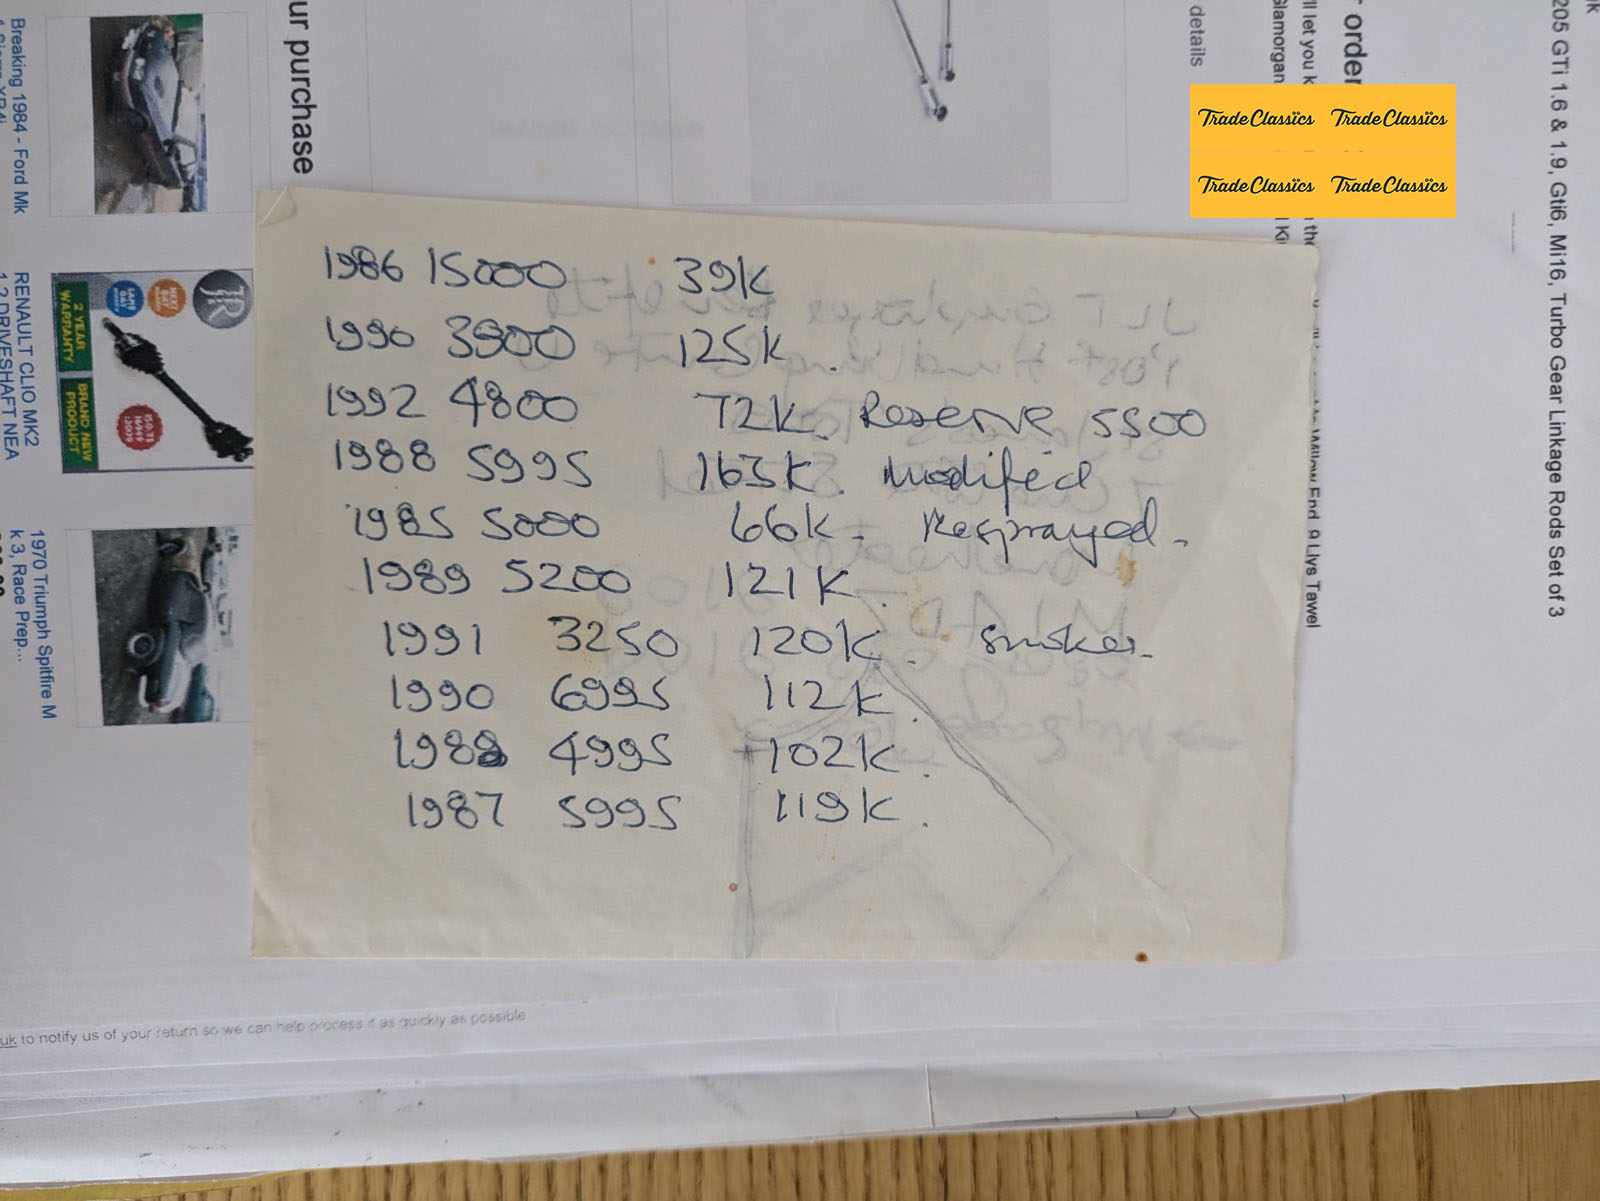 1986 15000 39K
1990 3900 125K.
1992 4800 72K. Reserve 5500
1988 5995 163K. Modified
1985 5000 66K. Resprayed.
1989 5200 121K.
1991 3250 120K. Smoker.
1990 6995 112K.
1988 4995 102K.
1987 5995 119K.
TradeClassics TradeClassics
TradeClassics TradeClassics
ur purchase
Breaking 1984 - Ford Mk
RENAULT CLIO MK2
1.2 DRIVESHAFT NEA
2 YEAR WARRANTY
BRAND NEW PRODUCT
JR
1970 Triumph Spitfire M
k 3, Race Prep...
details
r order
'll let you k
Glamorgan
Willow End, 9 Llys Tawel
205 GTi 1.6 & 1.9, Gti6, Mi16, Turbo Gear Linkage Rods Set of 3
uk to notify us of your return so we can help process it as quickly as possible